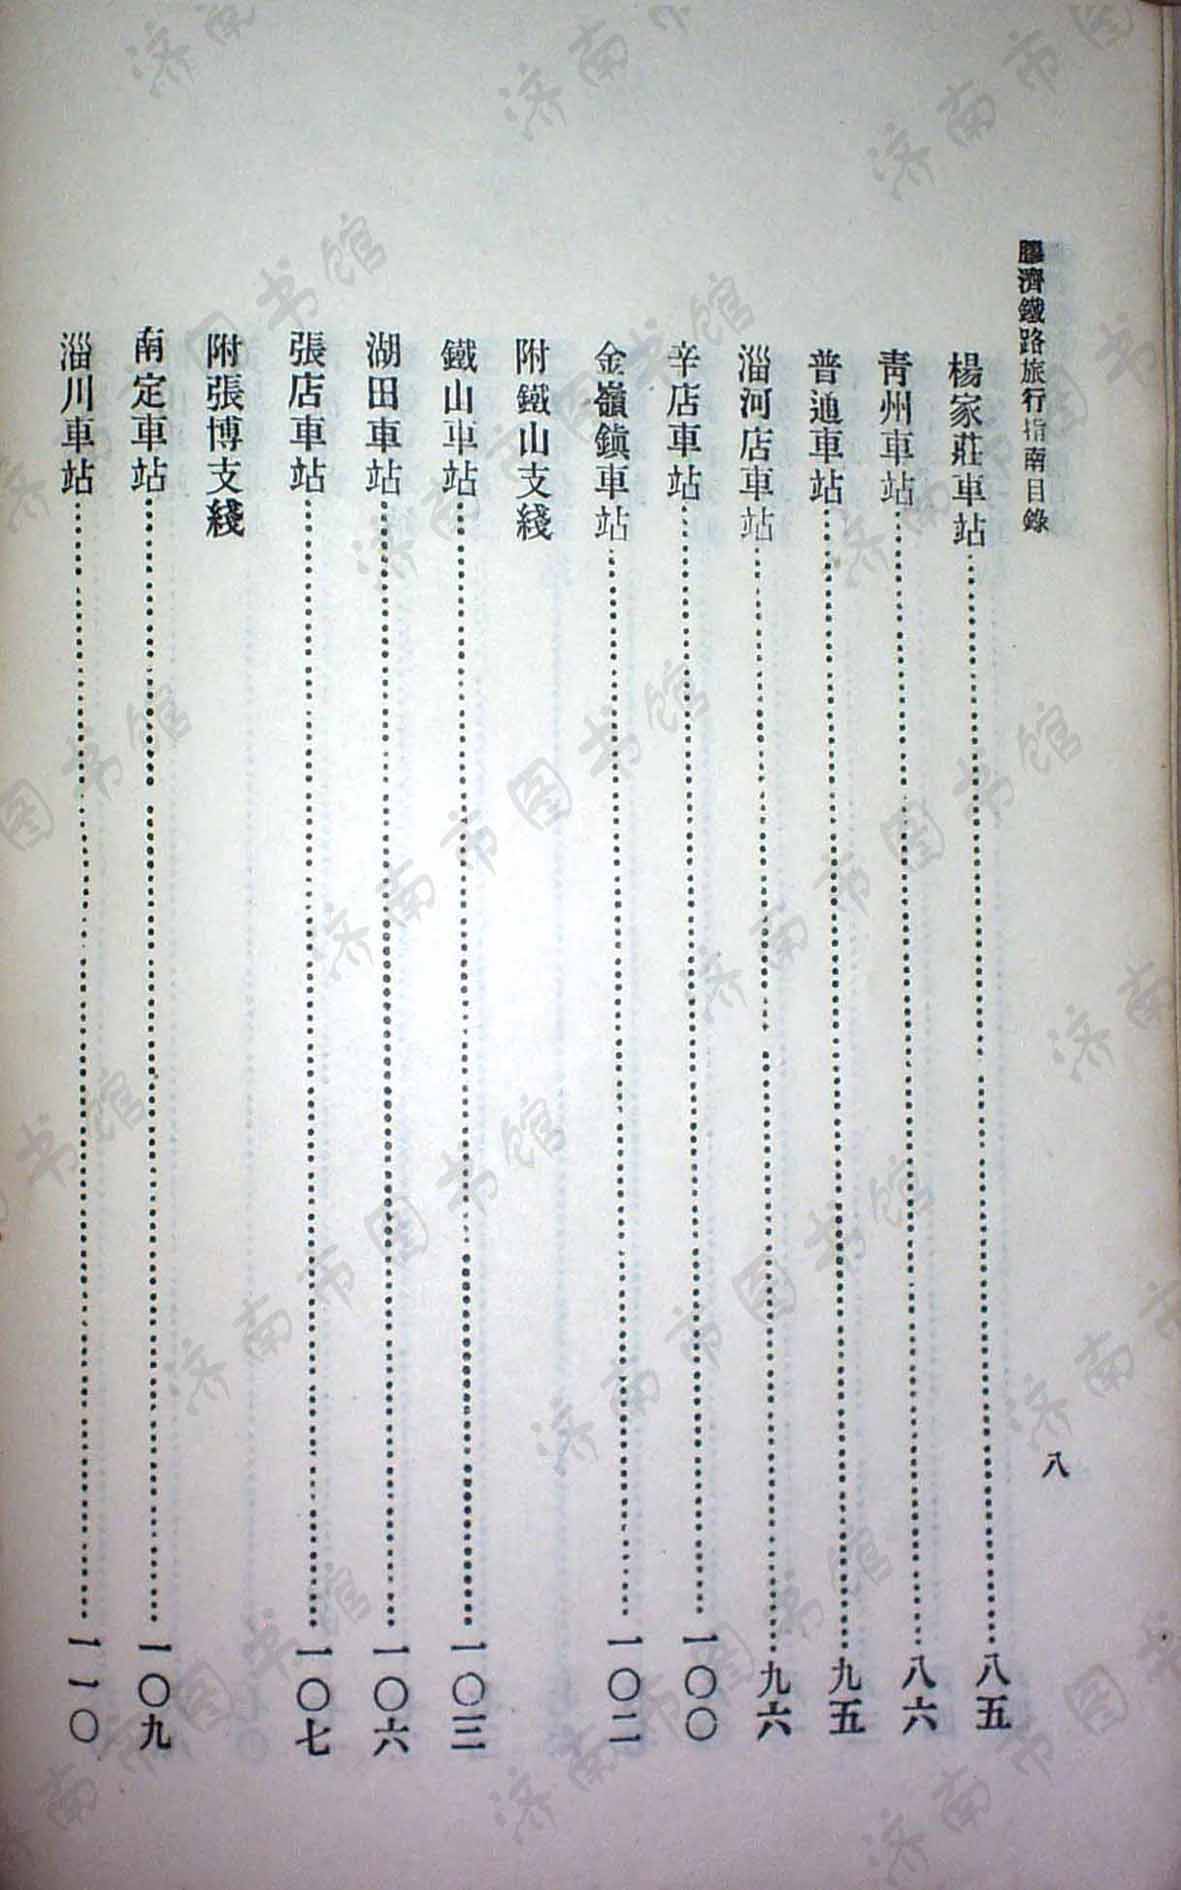 膠濟鐵路旅行指南目錄
八
楊家莊車站……八五
靑州車站……八六
普通車站……九五
淄河店車站……九六
辛店車站……一〇〇
金嶺鎭車站……一〇二
附鐵山支綫
鐵山車站……一〇三
湖田車站……一〇六
張店車站……一〇七
附張博支綫
南定車站……一〇九
淄川車站……一一〇
济南市图书馆